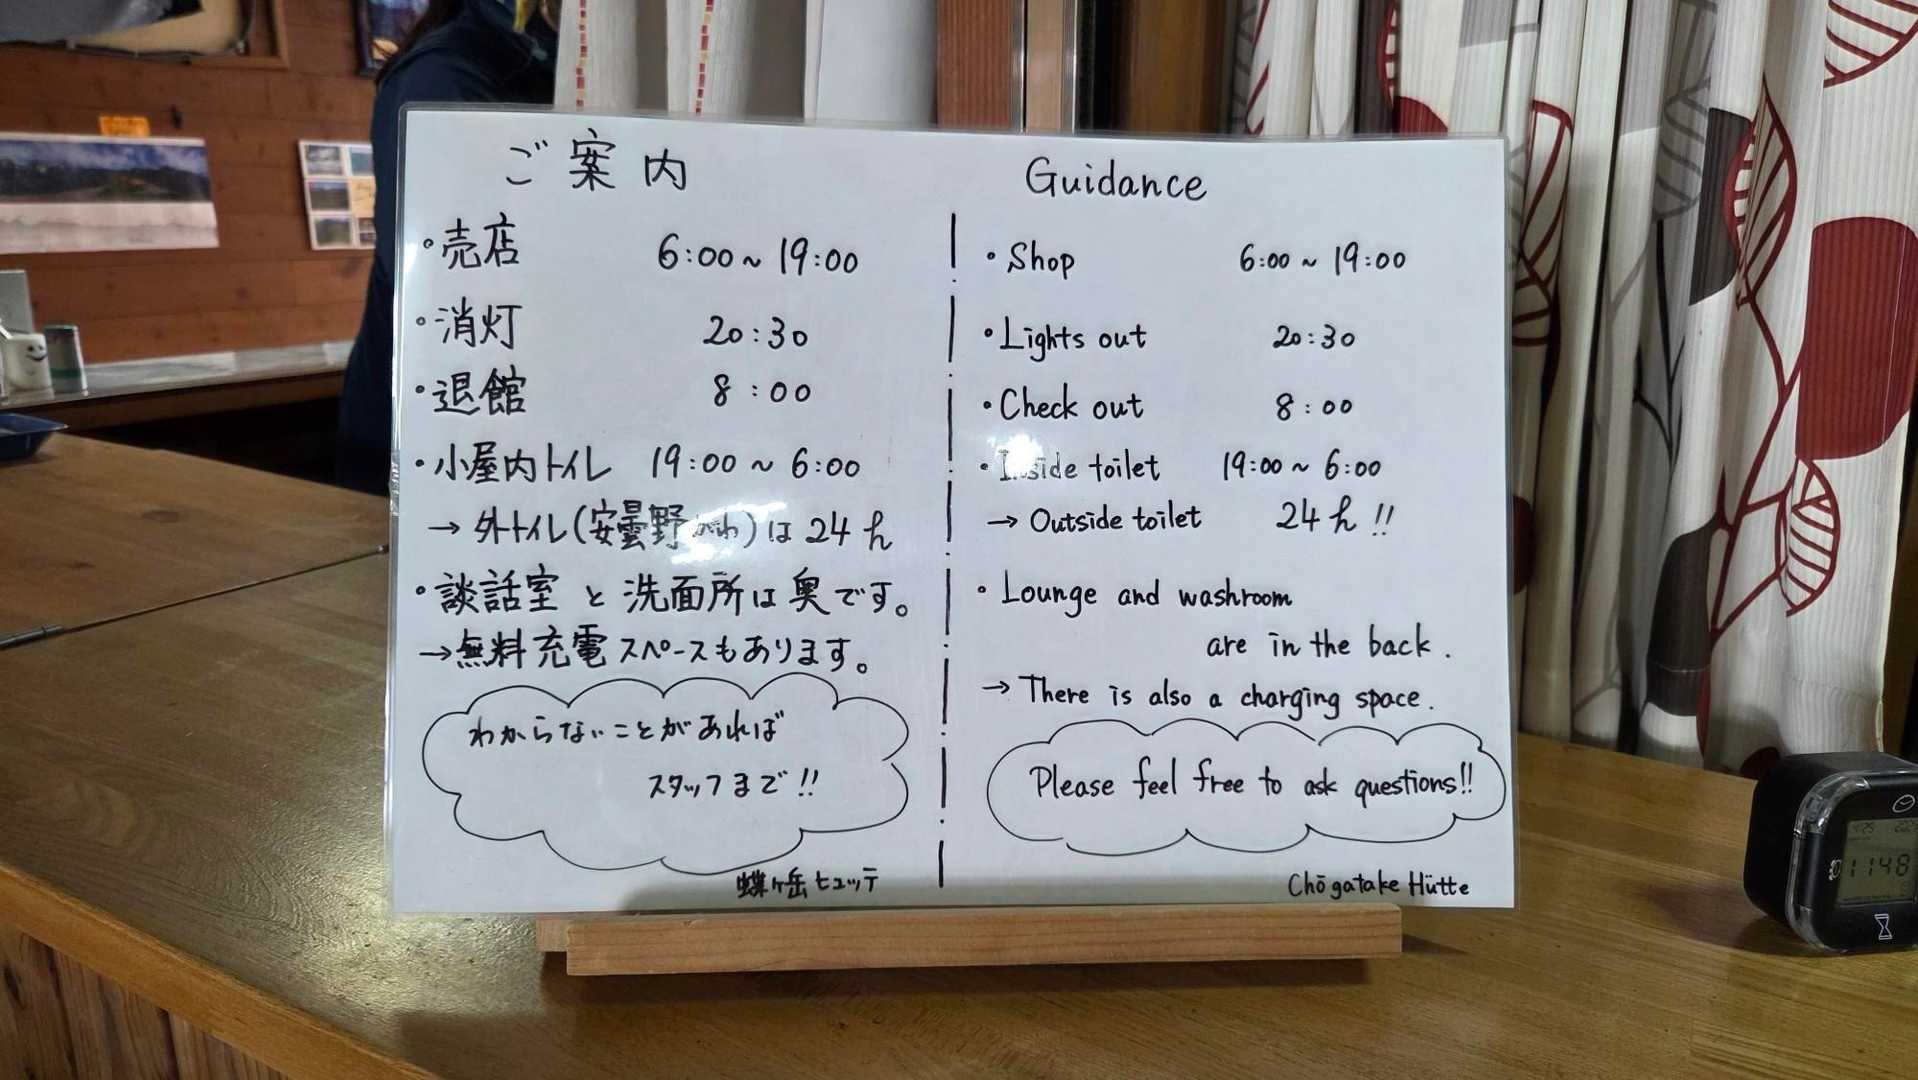 ご案内
・売店 6:00~19:00
・消灯 20:30
・退館 8:00
・小屋内トイレ 19:00~6:00
→外トイレ(安曇野がわ)は24h
・談話室と洗面所は奥です。
→無料充電スペースもあります。
わからないことがあれば
スタッフまで!!
蝶ヶ岳ヒュッテ
Guidance
・Shop 6:00~19:00
・Lights out 20:30
・Check out 8:00
・Inside toilet 19:00~6:00
→Outside toilet 24h!!
・Lounge and washroom
are in the back.
→There is also a charging space.
Please feel free to ask questions!!
Chōgatake Hütte
1148